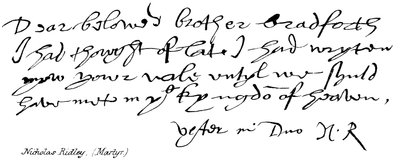 Dear beloved brother bradforth
I had thought of late I had wryten
unto your vale untyl we shuld
have mete in yᵉ kyngdō of heaven,
vester in Dño N. R
Nicholas Ridley, (Martyr.)